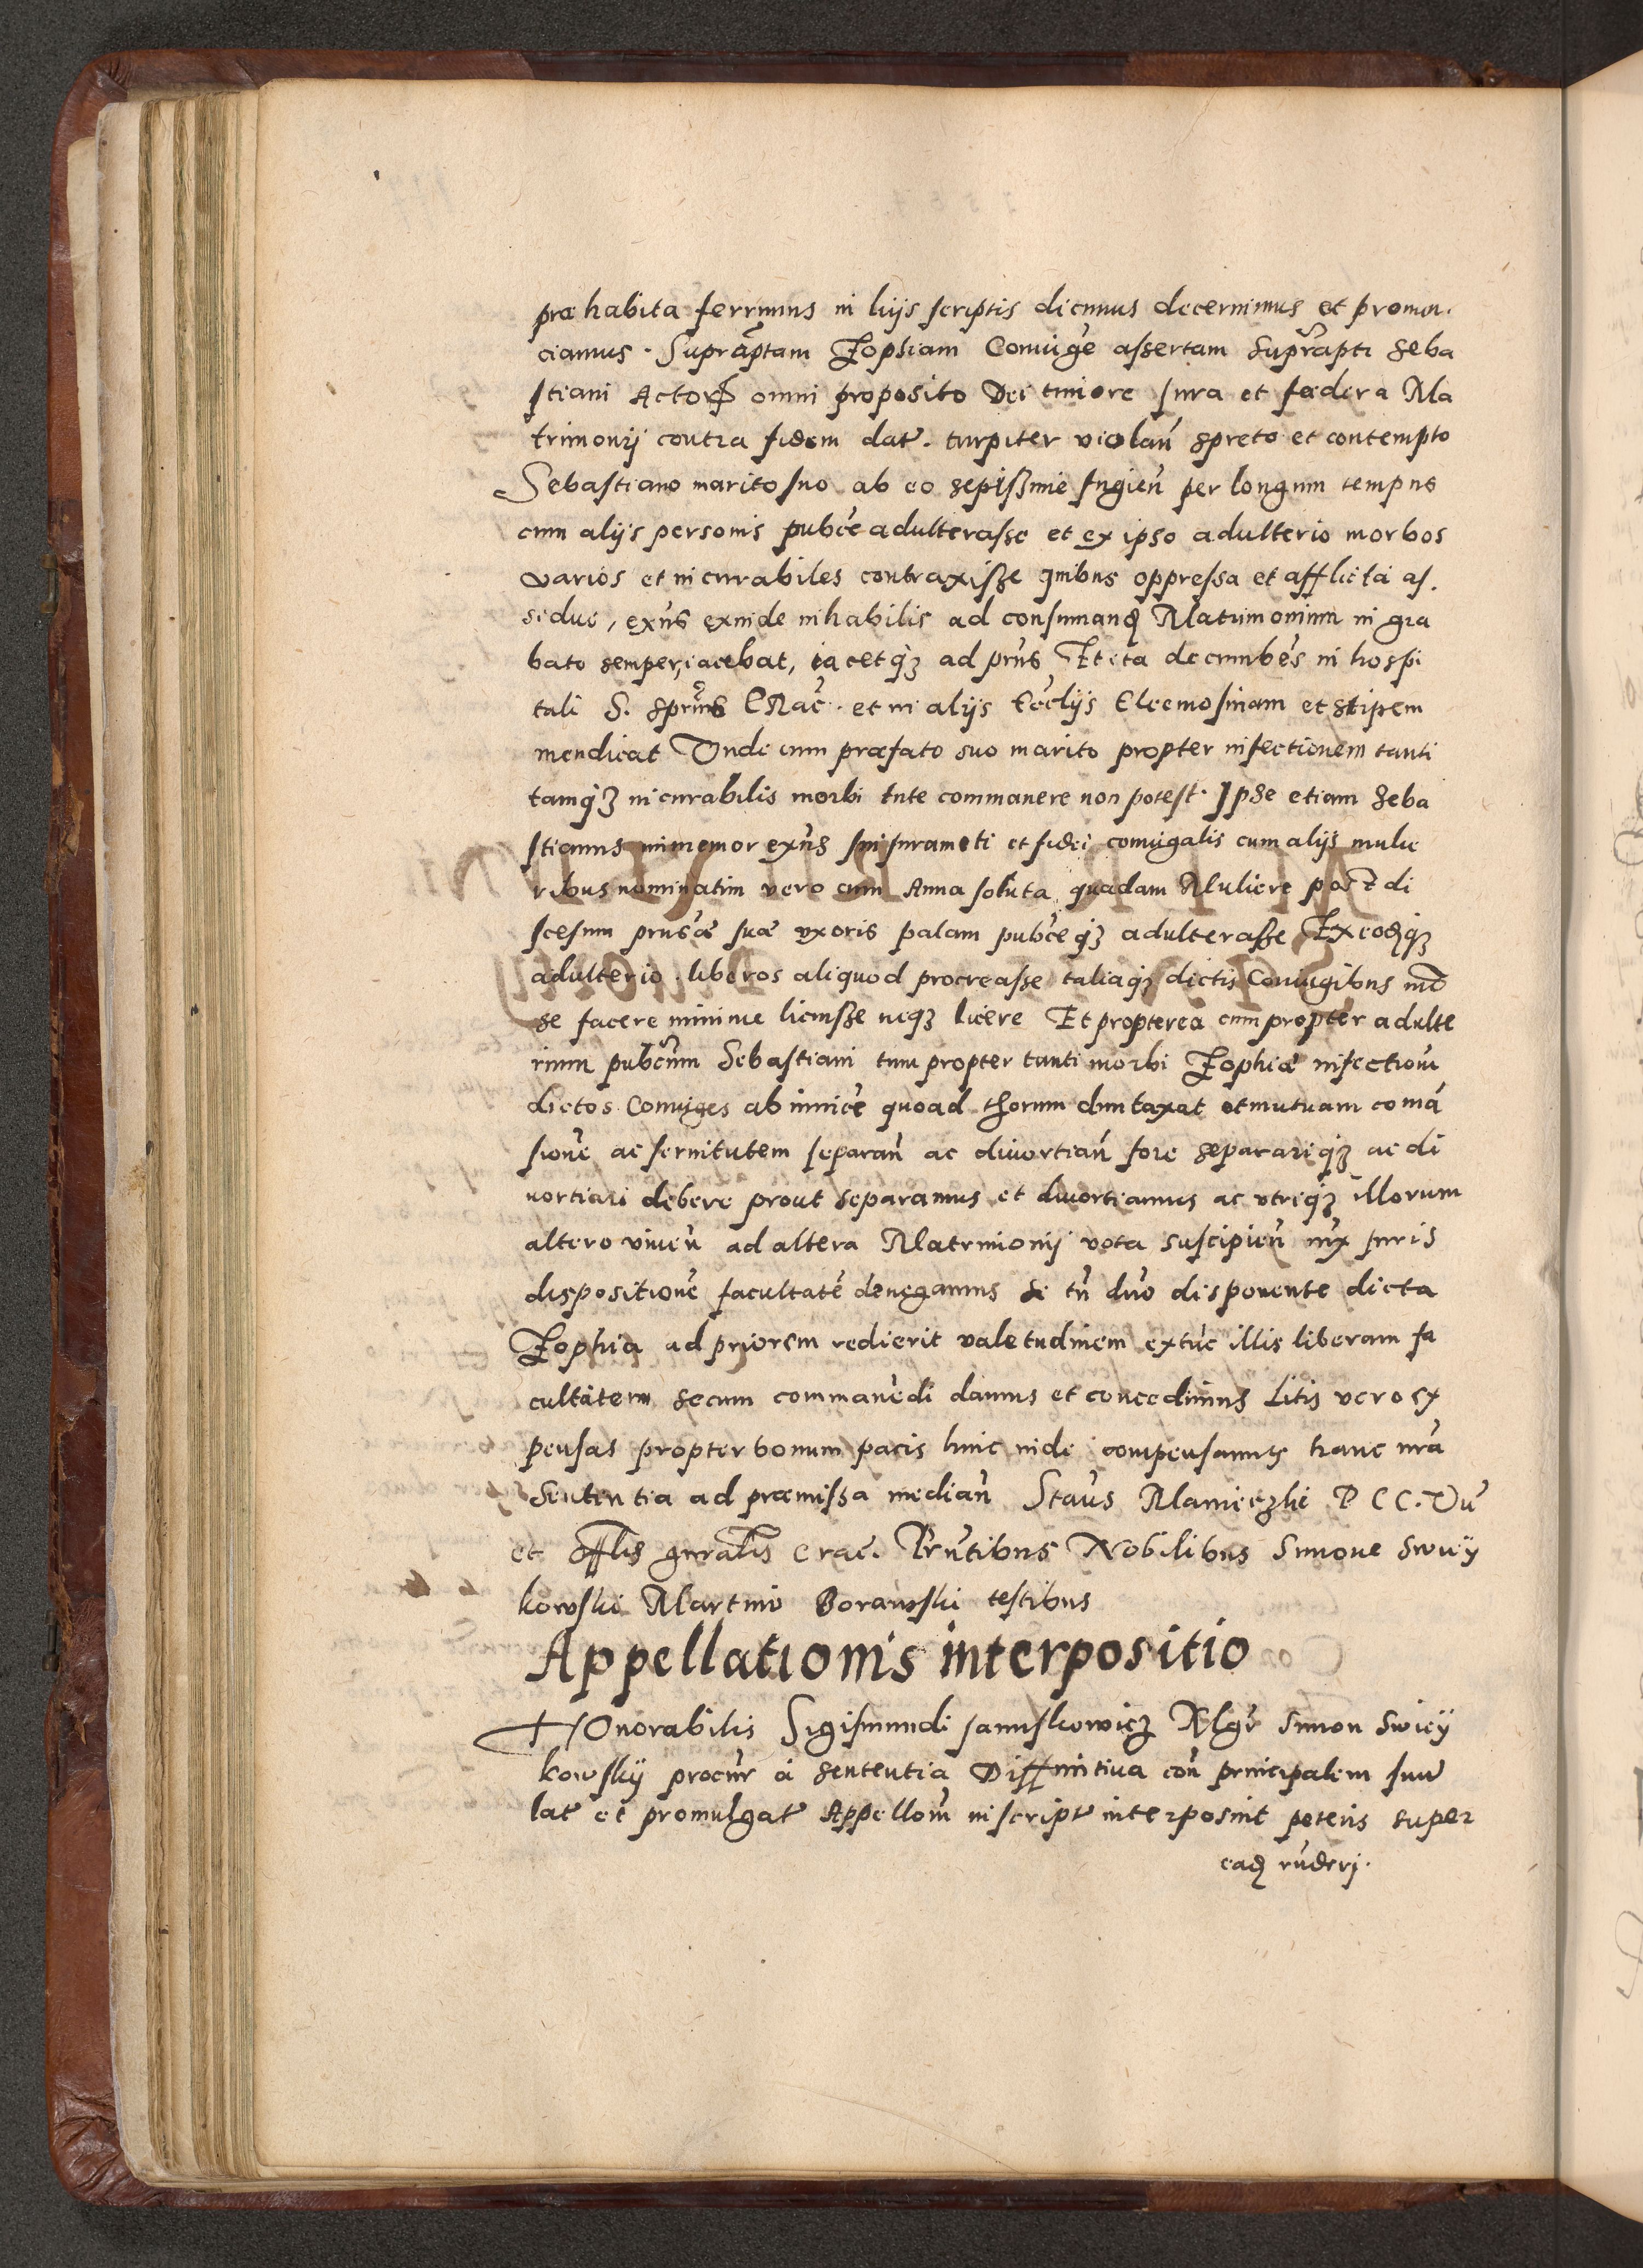 præhabita ferrimus in hijs scriptis dicimus decernimus et pronun.
ciamus. Supraptam Zophiam Coniuge assertam suprapti Seba
stiani Actor omni proposito Dei timore iura et fædera Ma
trimonij contra fidem dat. turpiter violan spreto et contempto
Sebastiano marito suo ab eo sepissime fugien per longum tempus
cum alijs personis pubce adulterasse et ex ipso adulterio morbos
varios et incurabiles contraxisse quibus oppressa et afflicta as.
sidue, exns exinde inhabilis ad consumand Matrimonium in gra
bato semper iacebat, iacetqȝ ad prns Et ita decumbes in hospi
tali S. sprus CRac. et in alijs Ecclijs Eleemosinam et stipem
mendicat Unde cum præfato suo marito propter infectionem tanti
tamqȝ incurabilis morbi tute commanere non potest. Ipse etiam Seba
stianus immemor exns sui iurameti et fidei coniugalis cum alijs mulie
ribus nominatim vero cum Anna soluta quadam Muliere post di
scesum prusæ suæ vxoris palam pubceqȝ adulterasse Ex eodqȝ
adulterio liberos aliquod procreasse taliaqȝ dictis Coniugibus
se facere minime licuisse neqȝ licere Et propterea cum propter adulte
rium pubcum Sebastiani tum propter tanti morbi Zophiæ infectiom
dictos Coniuges ab inuice quoad thorum duntaxat et mutuam comā
sione ac seruitutem separan ac diuortian fore separariqȝ ac di
uortiari debere prout separamus et diuortiamus ac vtriqȝ illorum
altero viuen ad altera Matrimonij vota suscipien iux iuris
dispositione facultate denegamus Si tn dno disponente dicta
Zophia ad priorem redierit valetudinem extuc illis liberam fa
cultatem secum commanedi damus et concedimus Litis vero ex
pensas propter bonum pacis hinc inde compensamus hanc nrā
Sententia ad præmissa median Staus Manieczki D C C. Vu
et Offlis gnralis Crac. Prntibus Nobilibus Simone Swiy
kowski Martino Borawski testibus
Appellationis interpositio
HOnorabilis Sigismundi Januskowicz Mgr Simon Swiey
kowskij procur a sententia Diffinitiua con principalem suu
lat et promulgat Appellom in script interposuit petens super
ead rnderj.